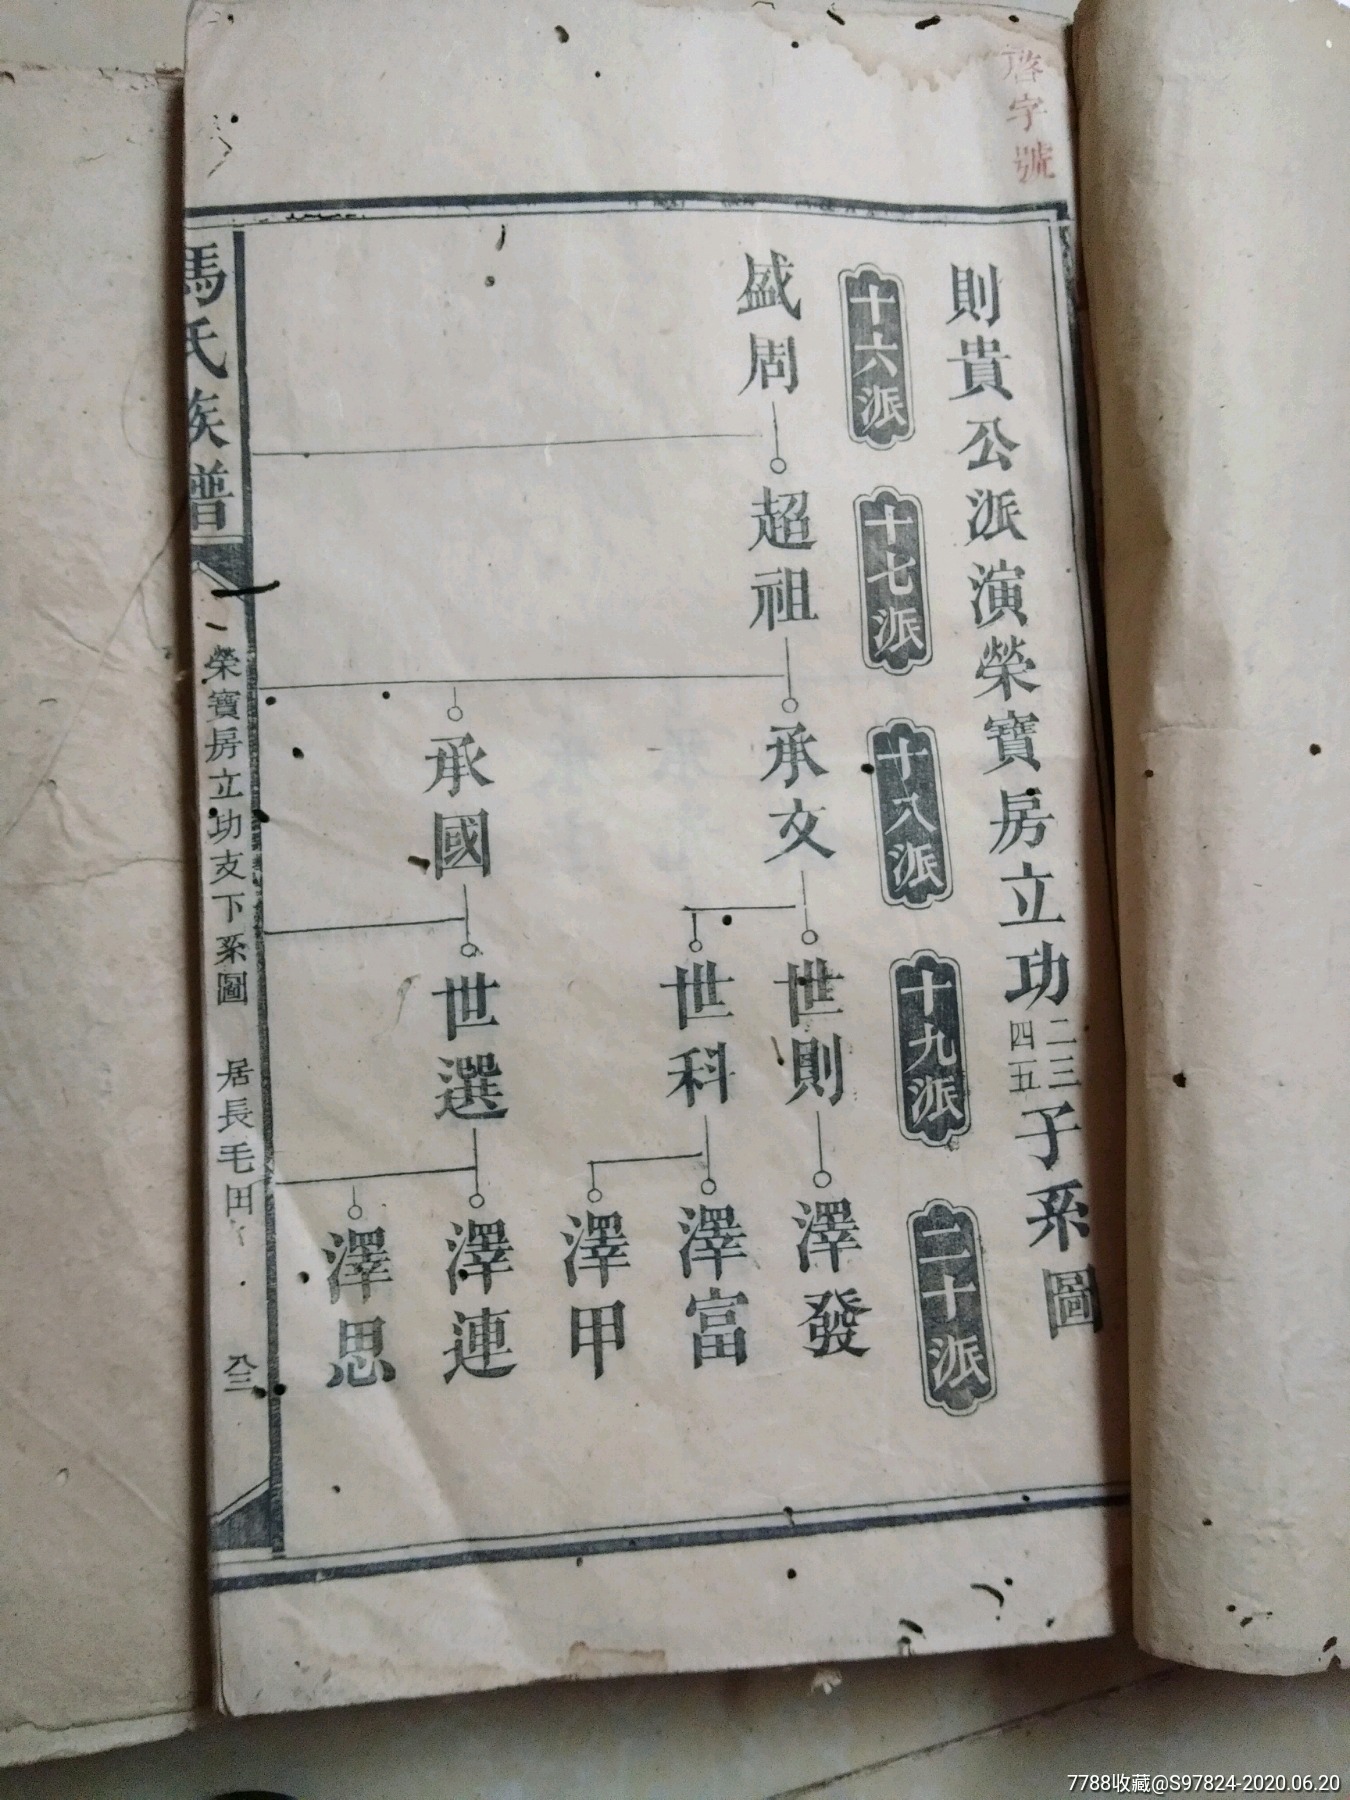 啓字號
則貴公派演榮寶房立功二三四五子系圖
十六派
十七派
十八派
十九派
二十派
盛周
超祖
承文
世則
澤發
世科
澤富
澤甲
承國
世選
澤連
澤思
馮氏族譜
榮寶房立功支下系圖
居長毛田
八三
7788收藏@S97824-2020.06.20